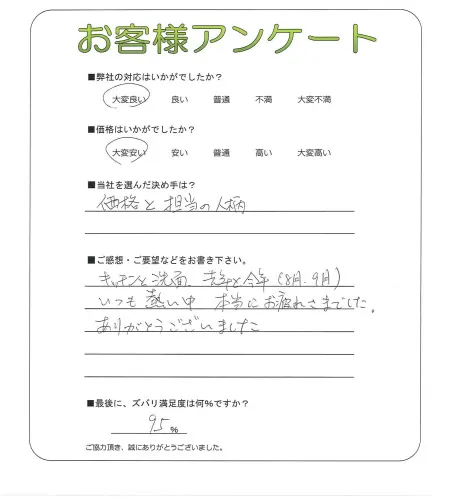 お客様アンケート
■弊社の対応はいかがでしたか？
大変良い 良い 普通 不満 大変不満
■価格はいかがでしたか？
大変安い 安い 普通 高い 大変高い
■当社を選んだ決め手は？
価格と担当の人柄
■ご感想・ご要望などをお書き下さい。
キッチンと洗面、去年と今年（8月、9月）
いつも熱い中 本当にお疲れさまでした。
ありがとうございました
■最後に、ズバリ満足度は何％ですか？
95 ％
ご協力頂き、誠にありがとうございました。